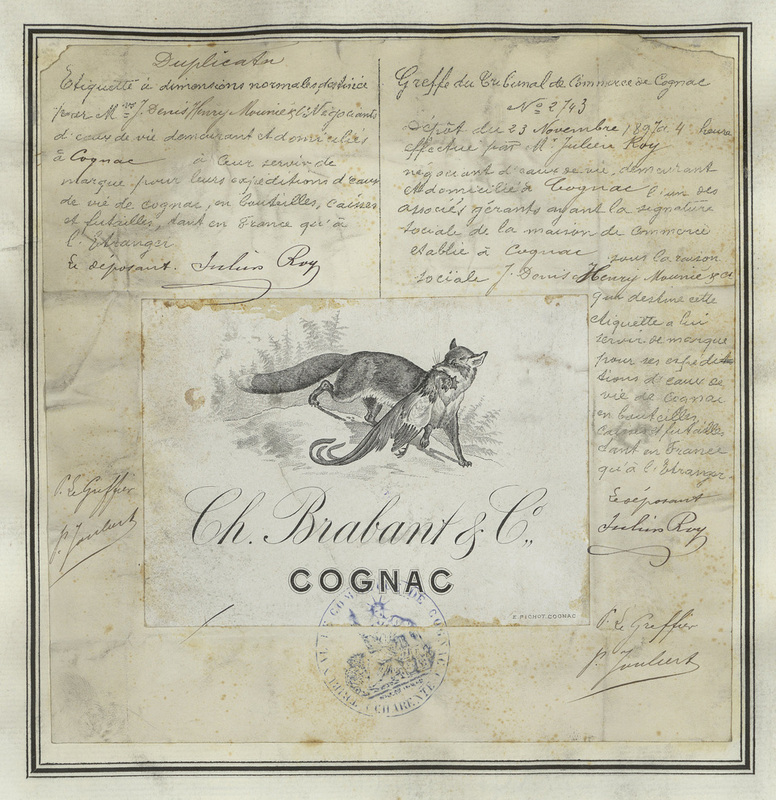 Duplicata
Etiquette à dimensions normales destinée
pour Mrs J. Denis, Henry Mounié & Cie Négociants
d'eaux de vie demeurant et domiciliés
à Cognac à leur servir de
marque pour leurs expéditions d'eaux
de vie de cognac, en bouteilles, caisses
et futailles, tant en France qu'à
l'Etranger
Le déposant. Julien Roy
Greffe du Tribunal de Commerce de Cognac
No 2743
Dépôt du 23 Novembre 1897 à 4 heures
effectué par Mr Julien Roy
négociant d'eaux de vie, demeurant
et domicilié à Cognac l'un des
associés gérants ayant la signature
sociale de la maison de commerce
établie à Cognac sous la raison
sociale J. Denis Henry Mounié & Cie
qui destine cette
étiquette à lui
servir de marque
pour ses expédi-
tions d'eaux de
vie de Cognac
en bouteilles,
caisses & futailles
tant en France
qu'à l'Etranger.
Le déposant
Julien Roy
P. Le Greffier
P. Joubert
Ch. Brabant & Co.,
COGNAC
E. PICHOT. COGNAC
P. Le Greffier
P. Joubert
COGNAC
CHARENTE